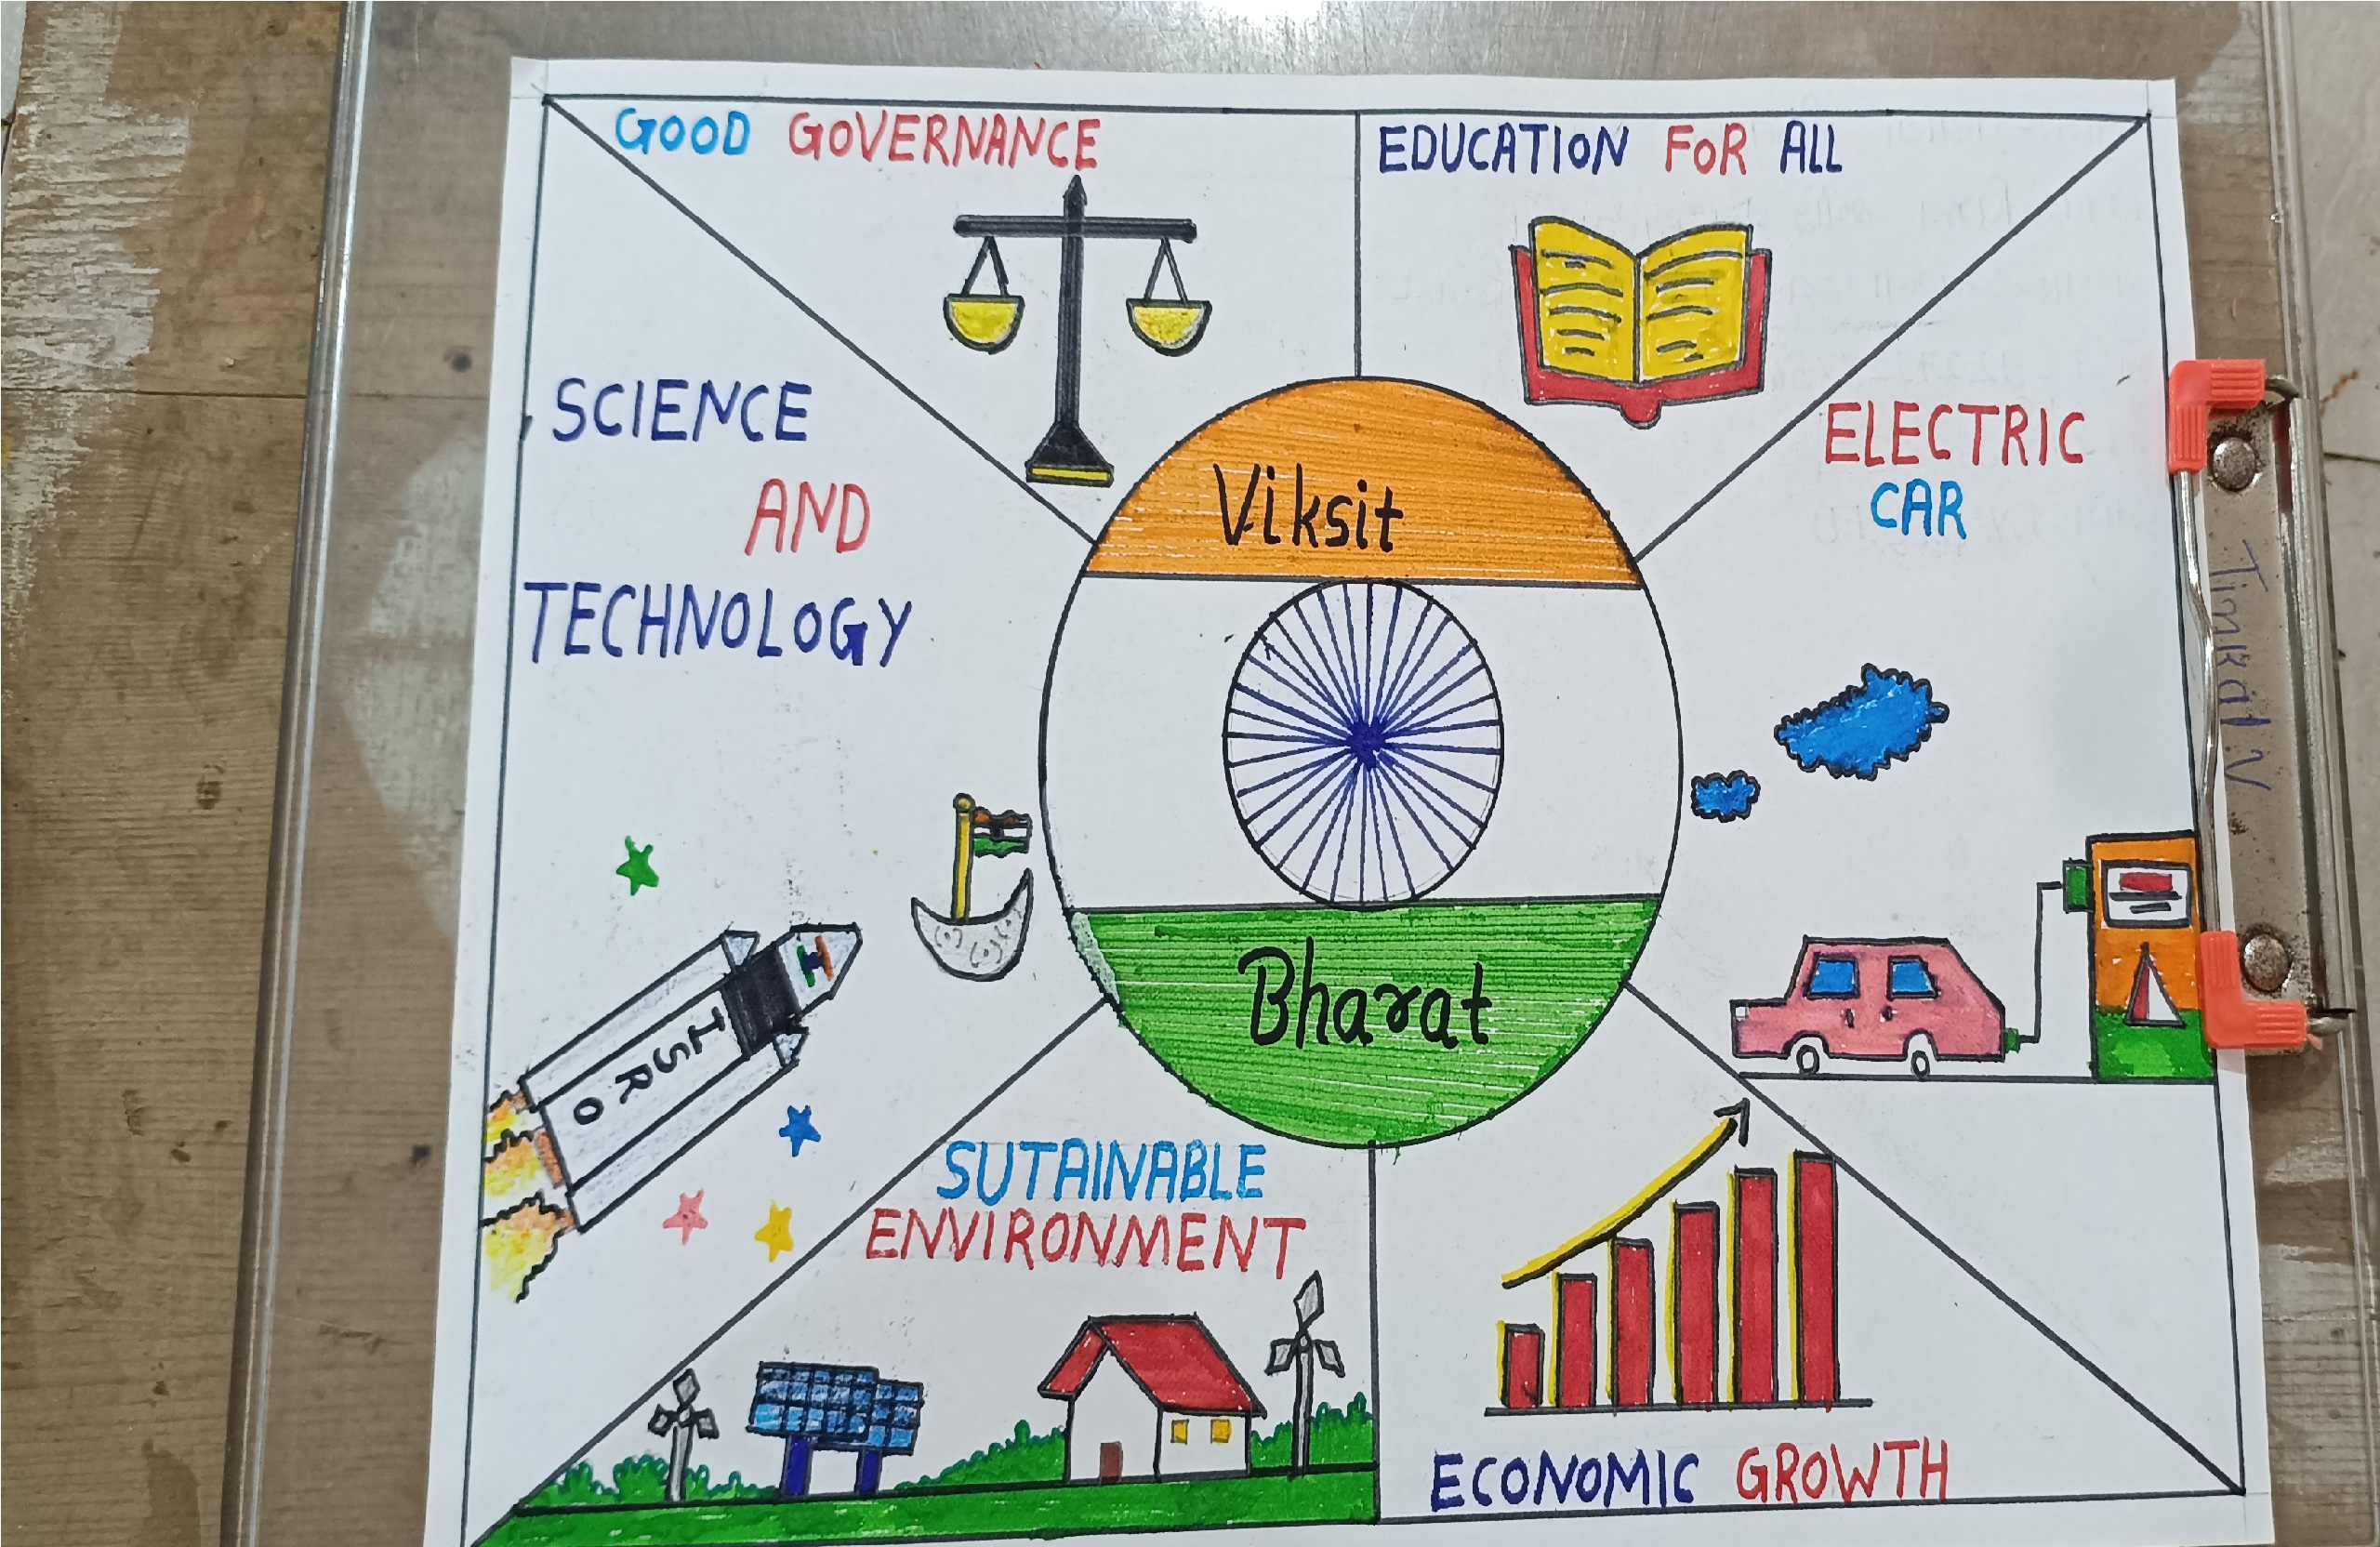 GOOD GOVERNANCE
EDUCATION FOR ALL
SCIENCE
AND
TECHNOLOGY
ELECTRIC
CAR
Viksit
Bharat
ISRO
SUTAINABLE
ENVIRONMENT
ECONOMIC GROWTH